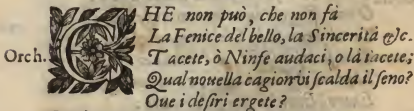 CHE non può, che non fà
La Fenice del bello, la Sincerità &c.
Orch. Tacete, ò Ninfe audaci, o là tacete;
Qual nouella cagion vi scalda il seno?
Oue i desiri ergete?